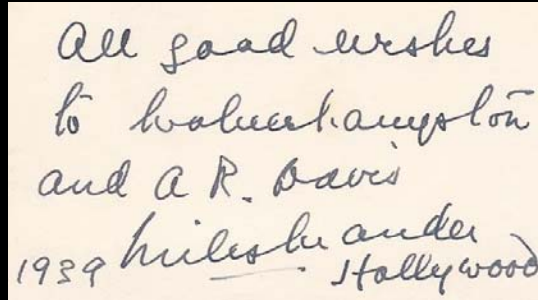 All good wishes
to Wolverhampton
and A R. Davis
Miles Mander
1939 Hollywood